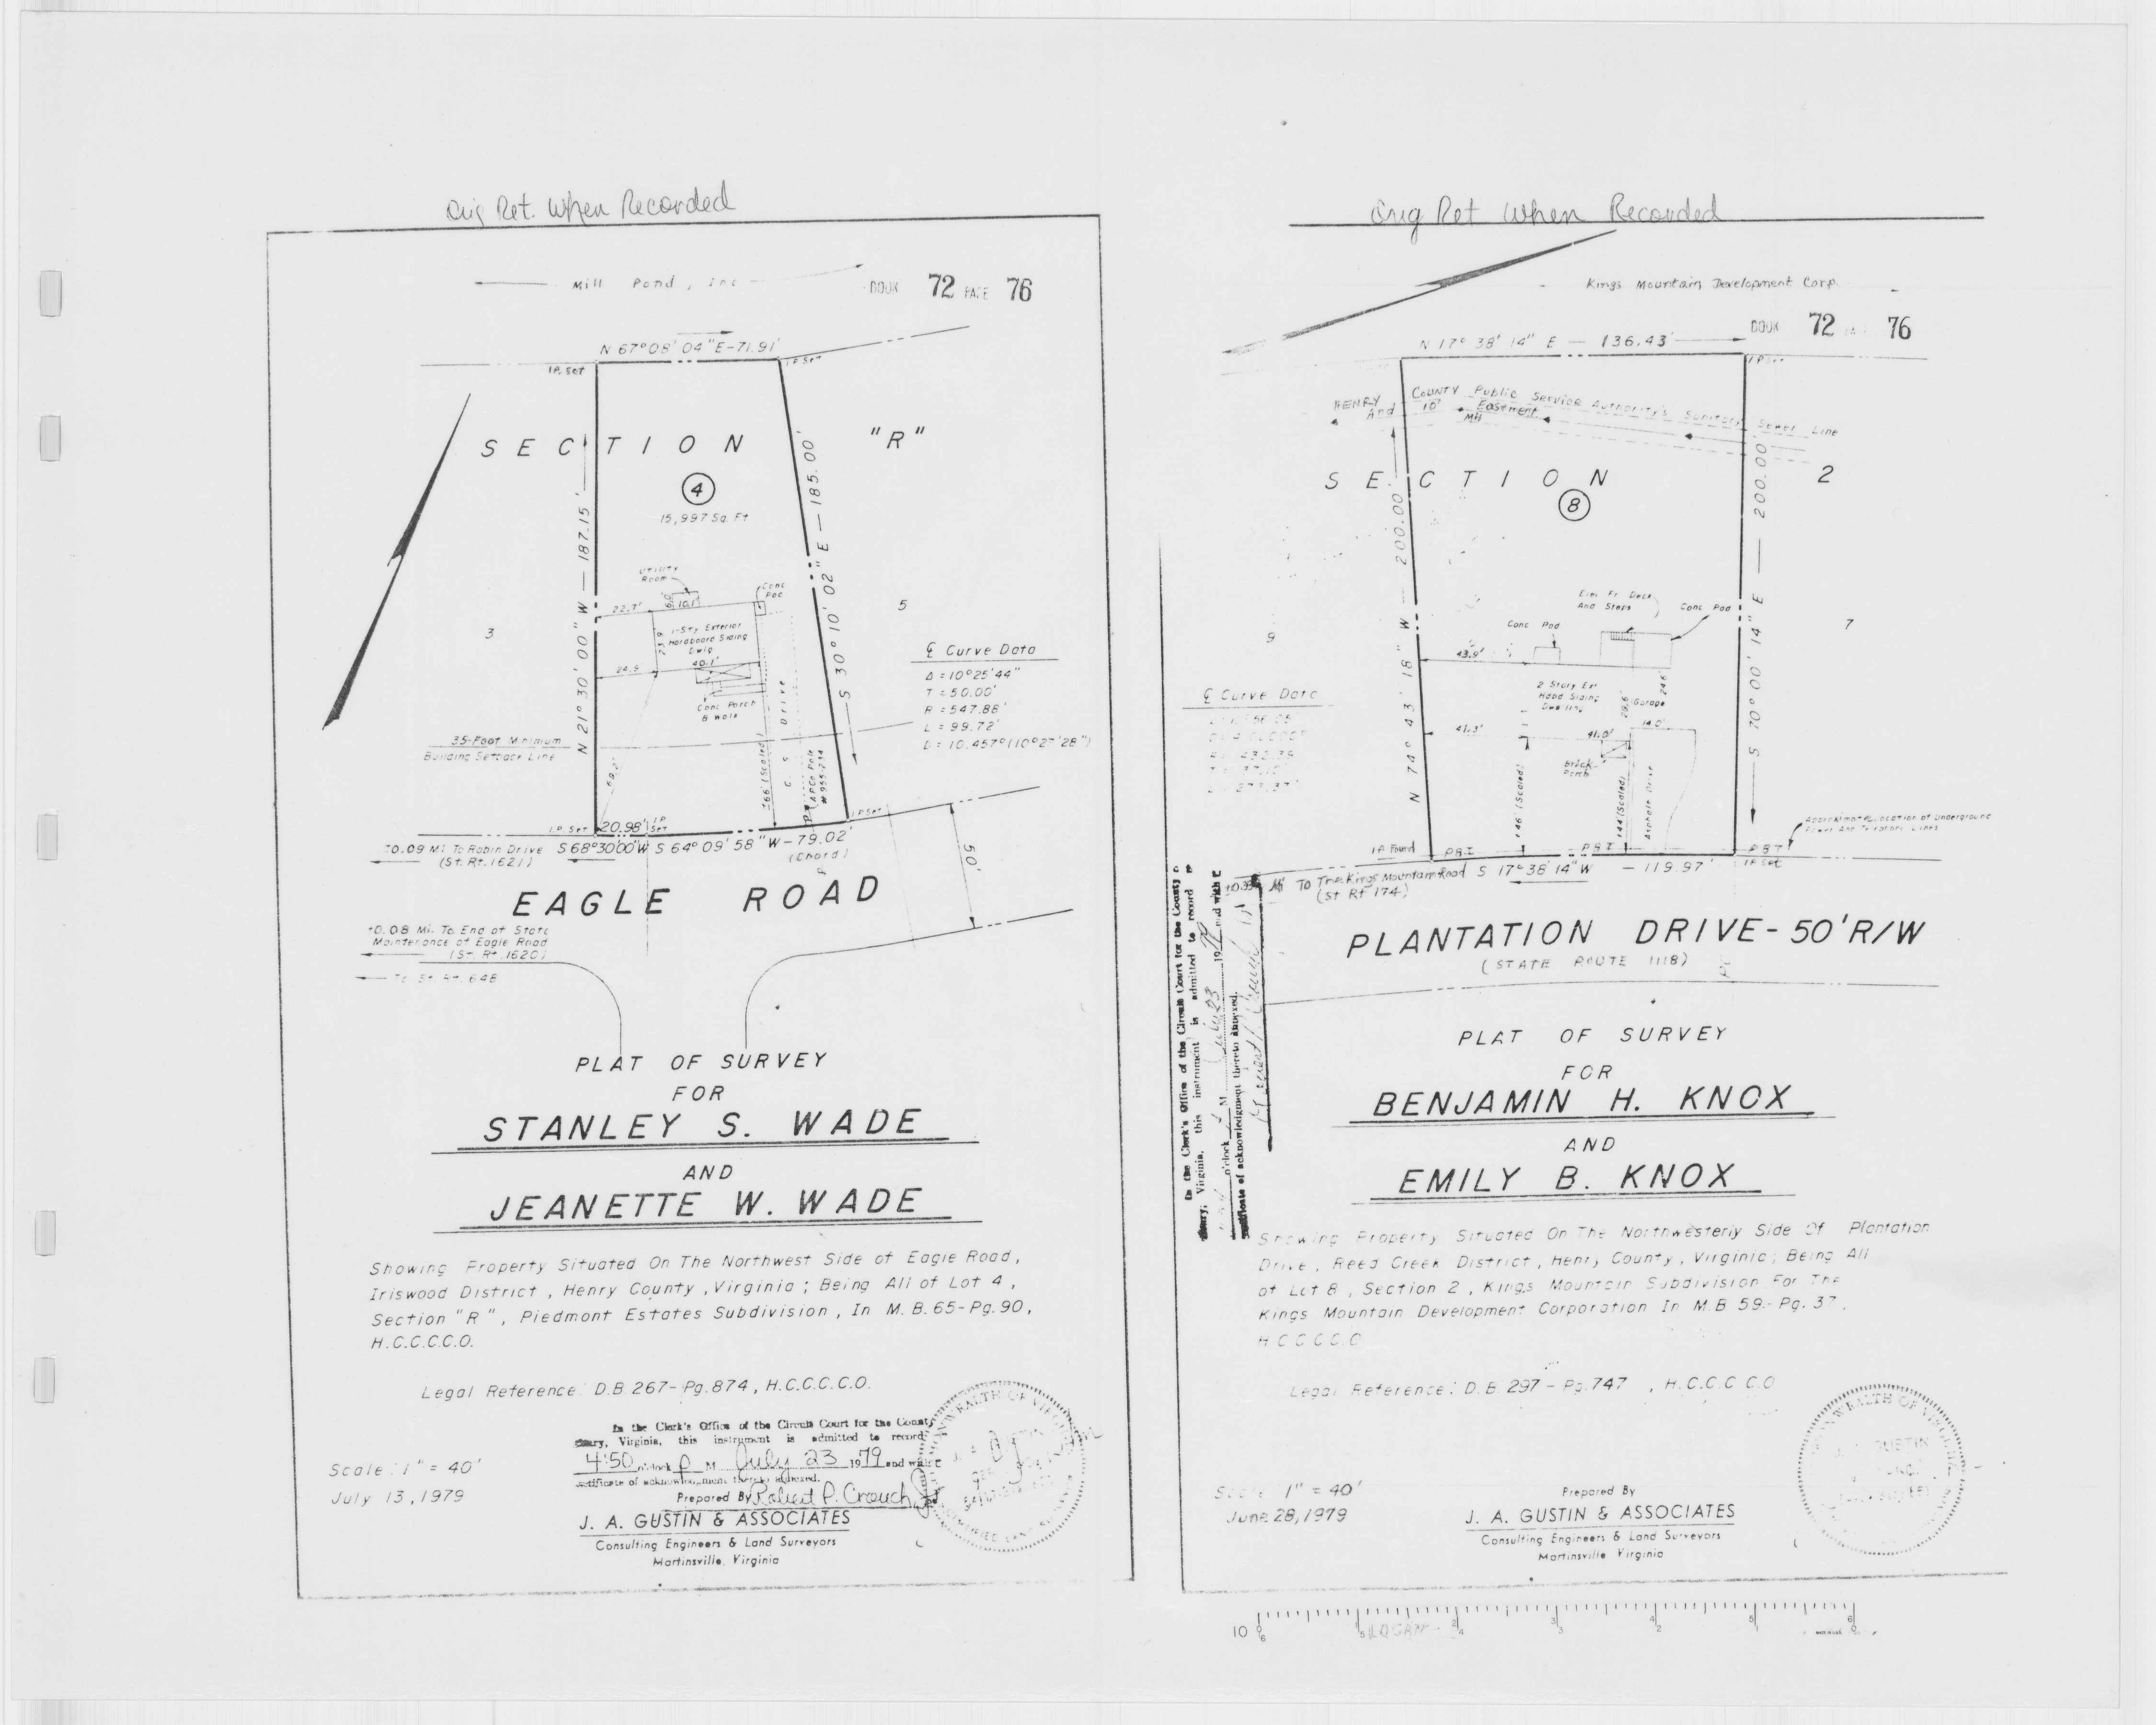 Orig Ret. When Recorded
Mill Pond, Inc
BOOK 72 PAGE 76
N 67°08'04"E-71.91'
I.P. Set
I.P Set
SECTION "R"
4
15,997 Sq. Ft
N 21° 30' 00" W — 187.15'
S 30° 10' 02" E — 185.00'
Utility
Room
Conc
Pad
22.7'
10.1'
3
5
23.9'
1-Sty Exterior
Hardboard Siding
Dwlg
40.1'
24.9
Conc Porch
& Walk
Drive
35-Foot Minimum
Building Setback Line
(Scaled)
APCo Pole
℄ Curve Data
Δ = 10°25'44"
T = 50.00'
R = 547.88'
L = 99.72'
D = 10.457°(10°27'28")
I.P. Set
20.98'
I.P.
Set
I.P Set
S 68°30'00"W S 64° 09' 58" W-79.02'
(Chord)
±0.09 Mi To Robin Drive
(St. Rt. 1621)
50'
EAGLE ROAD
±0.08 Mi. To End of State
Maintenance of Eagle Road
(St. Rt. 1620)
To St. Rt. 648
PLAT OF SURVEY
FOR
STANLEY S. WADE
AND
JEANETTE W. WADE
Showing Property Situated On The Northwest Side of Eagle Road,
Iriswood District, Henry County, Virginia; Being All of Lot 4,
Section "R", Piedmont Estates Subdivision, In M.B. 65-Pg. 90,
H.C.C.C.C.O.
Legal Reference: D.B. 267-Pg. 874, H.C.C.C.C.O.
In the Clerk's Office of the Circuit Court for the County
Henry, Virginia, this instrument is admitted to record
4:50 o'clock P M July 23 1979 and with
certificate of acknowledgment thereto annexed.
Robert P. Crouch, Jr
Scale: 1" = 40'
July 13, 1979
Prepared By
J. A. GUSTIN & ASSOCIATES
Consulting Engineers & Land Surveyors
Martinsville, Virginia
Orig Ret When Recorded
Kings Mountain Development Corp.
BOOK 72 76
N 17° 38' 14" E — 136.43'
I.P Set
HENRY COUNTY Public Service Authority's Sanitary Sewer Line
And 10' Easement
MH
SECTION 2
8
N 74° 43' 18" W — 200.00'
S 70° 00' 14" E — 200.00'
9
7
Deck
And Steps
Conc Pad
Conc Pad
43.9'
2 Story Ex
Siding
Dwelling
Garage
41.3'
41.0'
14.0'
Brick
Porch
±46' (Scaled)
±44' (Scaled)
Asphalt Drive
℄ Curve Data
Approximate Location of Underground
Power And Telephone Lines
I.P Found
P.B.T
P.B.T
P.B.T
I.P Set
S 17° 38' 14" W — 119.97'
Mi To The Kings Mountain Road
(St Rt 174)
PLANTATION DRIVE-50'R/W
(STATE ROUTE 1118)
In the Clerk's Office of the Circuit Court for the County
Henry, Virginia, this instrument is admitted to record
o'clock M July 23 19 and with
certificate of acknowledgment thereto annexed.
PLAT OF SURVEY
FOR
BENJAMIN H. KNOX
AND
EMILY B. KNOX
Showing Property Situated On The Northwesterly Side Of Plantation
Drive, Reed Creek District, Henry County, Virginia; Being All
of Lot 8, Section 2, Kings Mountain Subdivision For The
Kings Mountain Development Corporation In M.B 59-Pg. 37,
H.C.C.C.C.O
Legal Reference: D.B. 297-Pg. 747, H.C.C.C.C.O
Scale 1" = 40'
June 28, 1979
Prepared By
J. A. GUSTIN & ASSOCIATES
Consulting Engineers & Land Surveyors
Martinsville Virginia
LOGAN